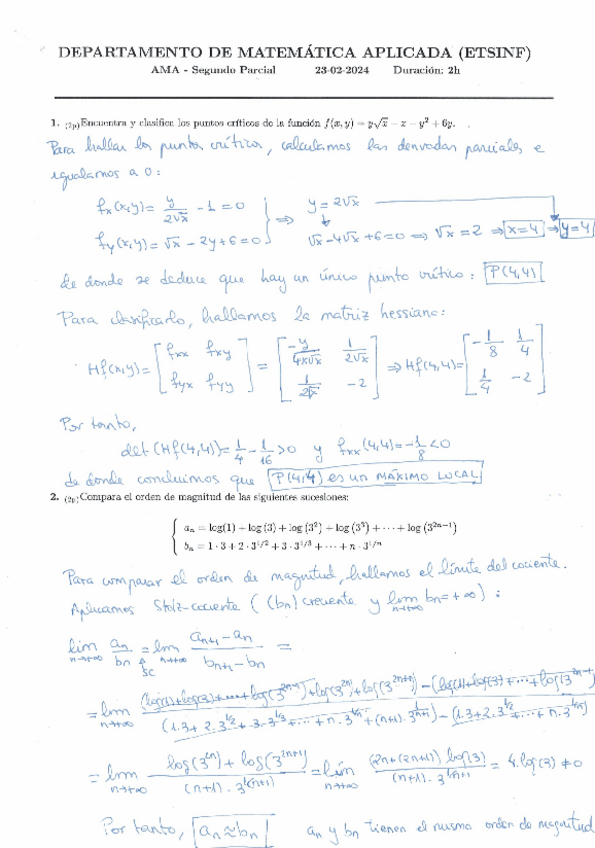 DEPARTAMENTO DE MATEMÁTICA APLICADA (ETSINF)
AMA - Segundo Parcial 23-02-2024 Duración: 2h
1. (2p) Encuentra y clasifica los puntos críticos de la función f(x, y) = y√x − x − y² + 6y.
Para hallar los puntos críticos, calculamos las derivadas parciales e
igualamos a 0:
fx(x,y) = y/(2√x) − 1 = 0 } ⇒ y = 2√x
fy(x,y) = √x − 2y + 6 = 0 √x − 4√x + 6 = 0 ⇒ √x = 2 ⇒ x=4 ⇒ y=4
de donde se deduce que hay un único punto crítico: P(4,4)
Para clasificarlo, hallamos la matriz hessiana:
Hf(x,y) = [fxx fxy; fyx fyy] = [−y/(4x√x) 1/(2√x); 1/(2√x) −2] ⇒ Hf(4,4) = [−1/8 1/4; 1/4 −2]
Por tanto,
det(Hf(4,4)) = 1/4 − 1/16 > 0 y fxx(4,4) = −1/8 < 0
de donde concluimos que P(4,4) es un MÁXIMO LOCAL
2. (2p) Compara el orden de magnitud de las siguientes sucesiones:
{ aₙ = log(1) + log(3) + log(3²) + log(3³) + ··· + log(3²ⁿ⁻¹)
bₙ = 1 · 3 + 2 · 3^(1/2) + 3 · 3^(1/3) + ··· + n · 3^(1/n)
Para comparar el orden de magnitud, hallamos el límite del cociente.
Aplicamos Stolz-cociente ((bn) creciente y lim n→+∞ bn = +∞):
lim n→+∞ an/bn = SC lim n→+∞ (an+1 − an)/(bn+1 − bn) =
= lim n→+∞ ((log(1)+log(3)+···+log(3^(2n-1))+log(3^(2n))+log(3^(2n+1))) − (log(1)+log(3)+···+log(3^(2n-1)))) / ((1·3+2·3^(1/2)+3·3^(1/3)+···+n·3^(1/n)+(n+1)·3^(1/(n+1))) − (1·3+2·3^(1/2)+···+n·3^(1/n)))
= lim n→+∞ (log(3^(2n)) + log(3^(2n+1))) / ((n+1)·3^(1/(n+1))) = lim n→+∞ ((2n+(2n+1)) log(3)) / ((n+1)·3^(1/(n+1))) = 4·log(3) ≠ 0
Por tanto, an ≈ bn an y bn tienen el mismo orden de magnitud